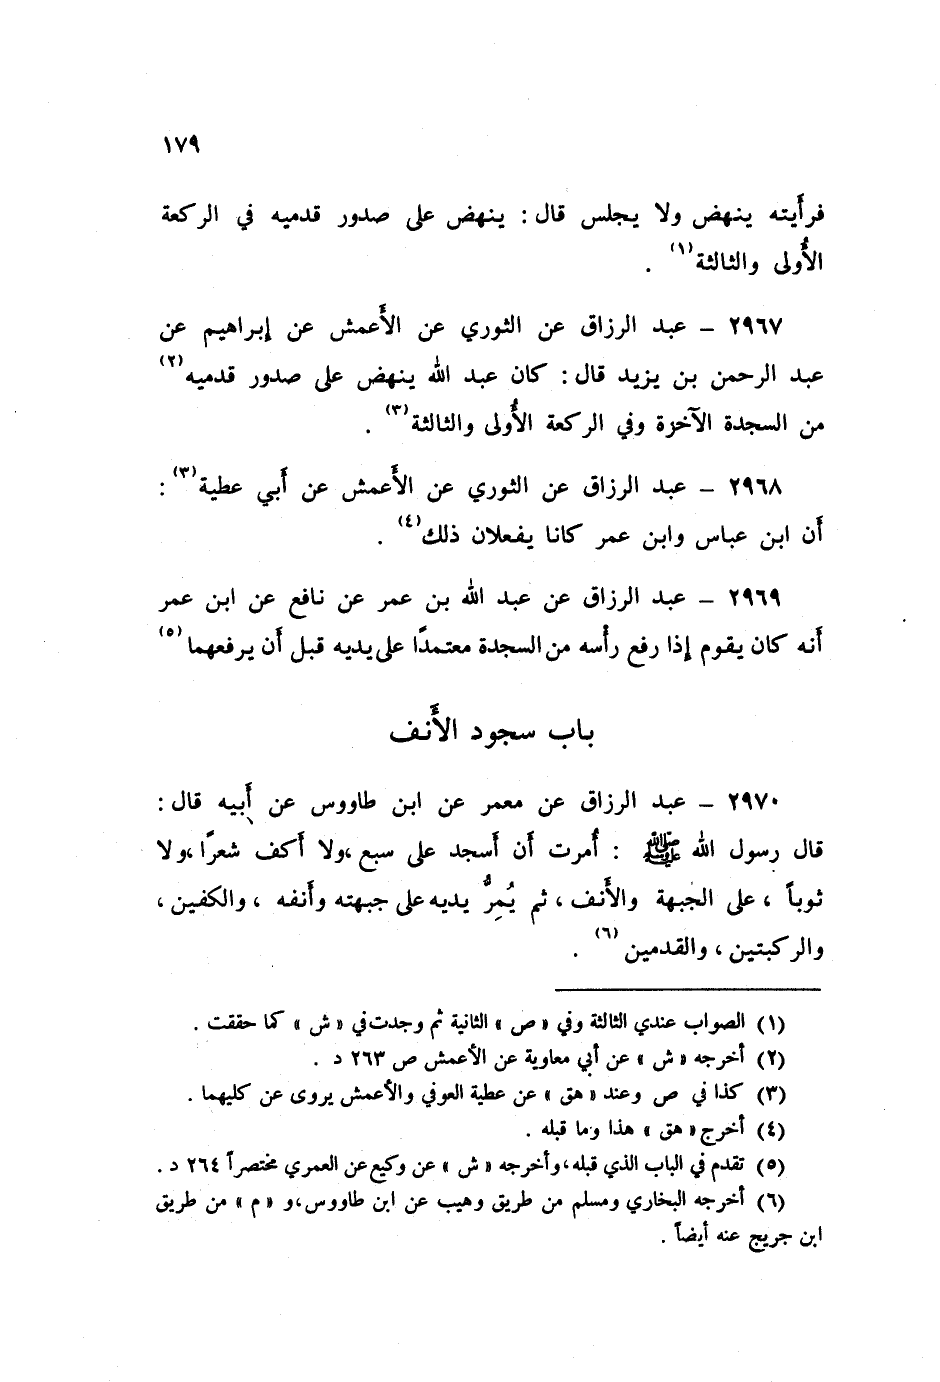 ١٧٩
فرأَيته ينهض ولا يجلس قال : ينهض على صدور قدميه في الركعة
الأُولى والثالثة(١) .
٢٩٦٧ – عبد الرزاق عن الثوري عن الأَعمش عن إبراهيم عن
عبد الرحمن بن يزيد قال : كان عبد الله ينهض على صدور قدميه(٢)
من السجدة الآخرة وفي الركعة الأُولى والثالثة(٣) .
٢٩٦٨ – عبد الرزاق عن الثوري عن الأَعمش عن أَبي عطية(٣) :
أَن ابن عباس وابن عمر كانا يفعلان ذلك(٤) .
٢٩٦٩ – عبد الرزاق عن عبد الله بن عمر عن نافع عن ابن عمر
أَنه كان يقوم إذا رفع رأْسه من السجدة معتمدًا على يديه قبل أَن يرفعهما(٥)
باب سجود الأَنف
٢٩٧٠ – عبد الرزاق عن معمر عن ابن طاووس عن أَبيه قال :
قال رسول الله ﷺ : أُمرت أَن أَسجد على سبع ، ولا أَكف شعرًا ، ولا
ثوباً ، على الجبهة والأَنف ، ثم يُمِرُّ يديه على جبهته وأَنفه ، والكفين ،
والركبتين ، والقدمين(٦) .
(١) الصواب عندي الثالثة وفي « ص » الثانية ثم وجدت في « ش » كما حققت .
(٢) أخرجه « ش » عن أبي معاوية عن الأعمش ص ٢٦٣ د .
(٣) كذا في ص وعند « هق » عن عطية العوفي والأعمش يروى عن كليهما .
(٤) أخرج « هق » هذا وما قبله .
(٥) تقدم في الباب الذي قبله ، وأخرجه « ش » عن وكيع عن العمري مختصراً ٢٦٤ د .
(٦) أخرجه البخاري ومسلم من طريق وهيب عن ابن طاووس ، و « م » من طريق
ابن جريج عنه أيضاً .